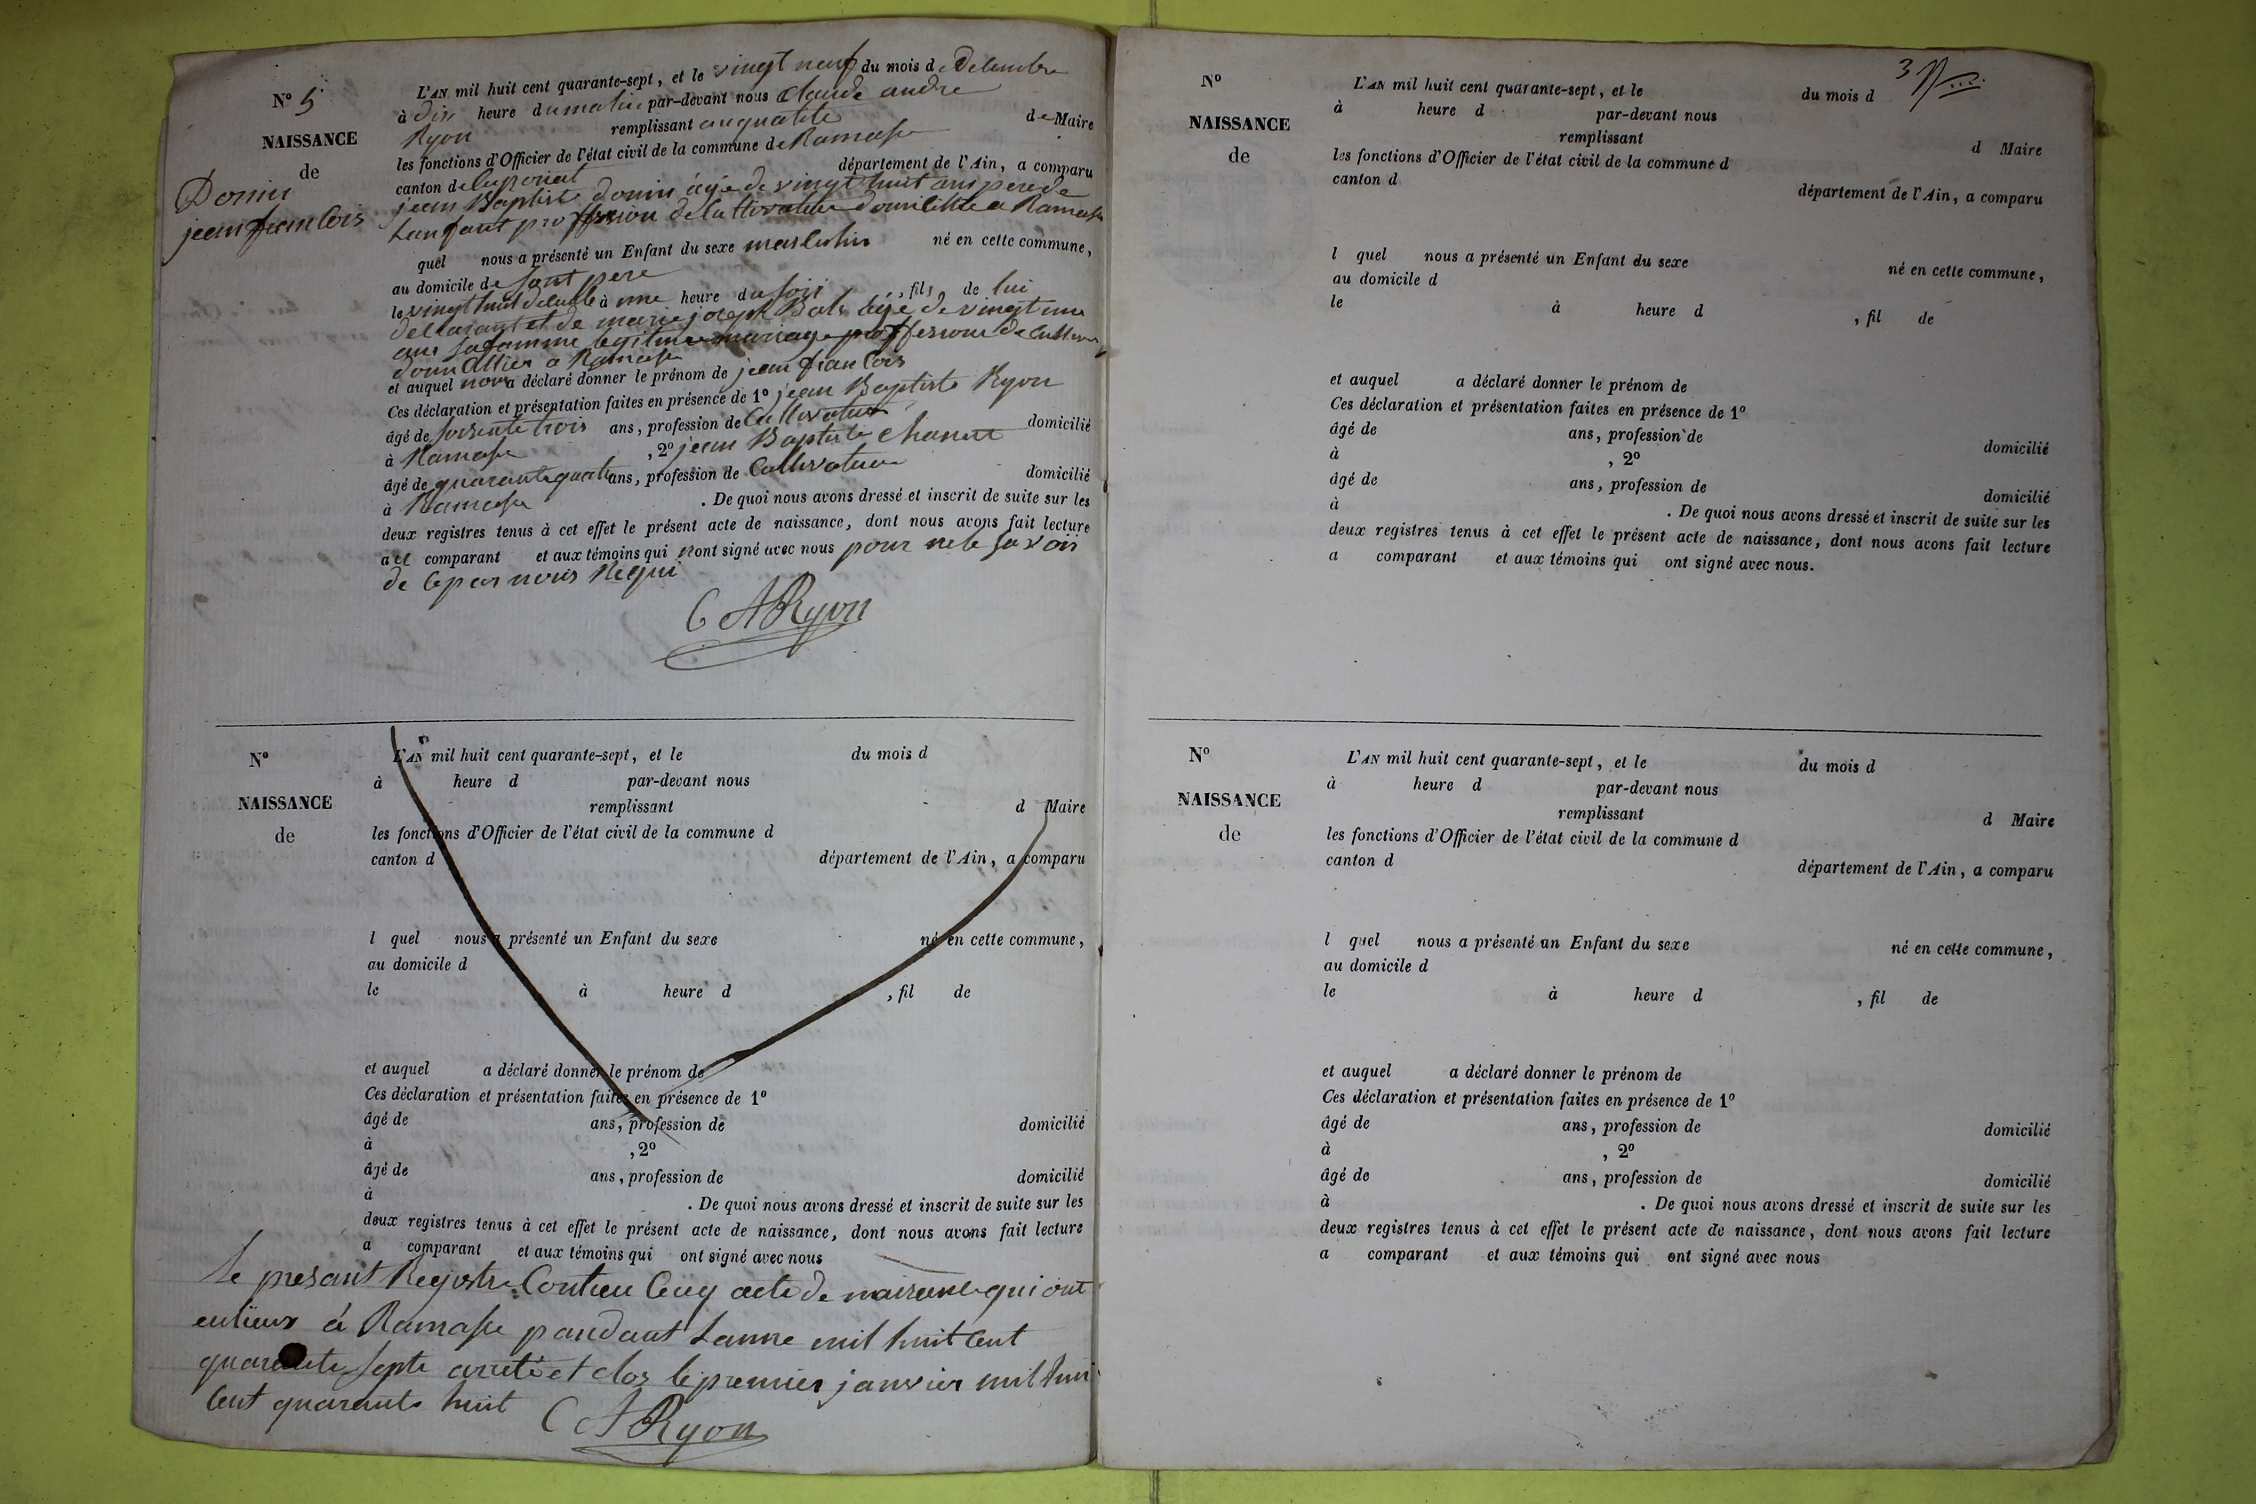 N° 5
NAISSANCE
de
Domin
jean francois
L'AN mil huit cent quarante-sept, et le vingt neuf du mois de decembre
à dix heure du matin par-devant nous Claude andré
Ryon remplissant en qualité de Maire
les fonctions d'Officier de l'état civil de la commune de Ramasse
canton de département de l'Ain, a comparu
jean Baptiste domin âgé de vingt huit ans pere de
Lenfant proffession de domicillié a Ramasse
quel nous a présenté un Enfant du sexe masculin né en cette commune,
au domicile de sont pere
le vingt huit à une heure du soir, fils de lui
declarant et de marie joseph âgé de vingt
ans sa famme legitime mariage proffession de
a Ramasse
et auquel nous a déclaré donner le prénom de jean francois
Ces déclaration et présentation faites en présence de 1° jean Baptiste Ryon
âgé de soisente trois ans, profession de Cultivateur domicilié
à Ramasse, 2° jean Baptiste Chanut
âgé de quarante quatre ans, profession de Cultivateur domicilié
à Ramasse. De quoi nous avons dressé et inscrit de suite sur les
deux registres tenus à cet effet le présent acte de naissance, dont nous avons fait lecture
au comparant et aux témoins qui n'ont signé avec nous pour ne le savoir
de ce par nous Requi
C A Ryon
N°
NAISSANCE
de
L'AN mil huit cent quarante-sept, et le du mois d
à heure d par-devant nous
remplissant d Maire
les fonctions d'Officier de l'état civil de la commune d
canton d département de l'Ain, a comparu
l quel nous a présenté un Enfant du sexe né en cette commune,
au domicile d
le à heure d , fil de
et auquel a déclaré donner le prénom de
Ces déclaration et présentation faites en présence de 1°
âgé de ans, profession de domicilié
à , 2°
âgé de ans, profession de domicilié
à . De quoi nous avons dressé et inscrit de suite sur les
deux registres tenus à cet effet le présent acte de naissance, dont nous avons fait lecture
a comparant et aux témoins qui ont signé avec nous
Le present Registre Contien Cinq acte de naissance qui ont
eulieux á Ramasse pandant Lanne mil huit Cent
quarante septe arreté et clos le premier janvier mil hui
Cent quarante huit C A Ryon
3
N°
NAISSANCE
de
L'AN mil huit cent quarante-sept, et le du mois d
à heure d par-devant nous
remplissant d Maire
les fonctions d'Officier de l'état civil de la commune d
canton d département de l'Ain, a comparu
l quel nous a présenté un Enfant du sexe né en cette commune,
au domicile d
le à heure d , fil de
et auquel a déclaré donner le prénom de
Ces déclaration et présentation faites en présence de 1°
âgé de ans, profession de domicilié
à , 2°
âgé de ans, profession de domicilié
à . De quoi nous avons dressé et inscrit de suite sur les
deux registres tenus à cet effet le présent acte de naissance, dont nous avons fait lecture
a comparant et aux témoins qui ont signé avec nous.
N°
NAISSANCE
de
L'AN mil huit cent quarante-sept, et le du mois d
à heure d par-devant nous
remplissant d Maire
les fonctions d'Officier de l'état civil de la commune d
canton d département de l'Ain, a comparu
l quel nous a présenté un Enfant du sexe né en cette commune,
au domicile d
le à heure d , fil de
et auquel a déclaré donner le prénom de
Ces déclaration et présentation faites en présence de 1°
âgé de ans, profession de domicilié
à , 2°
âgé de ans, profession de domicilié
à . De quoi nous avons dressé et inscrit de suite sur les
deux registres tenus à cet effet le présent acte de naissance, dont nous avons fait lecture
a comparant et aux témoins qui ont signé avec nous